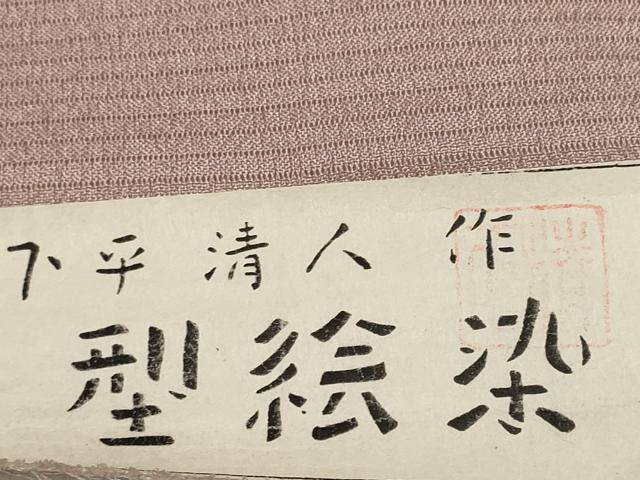 下平清人作
型絵染